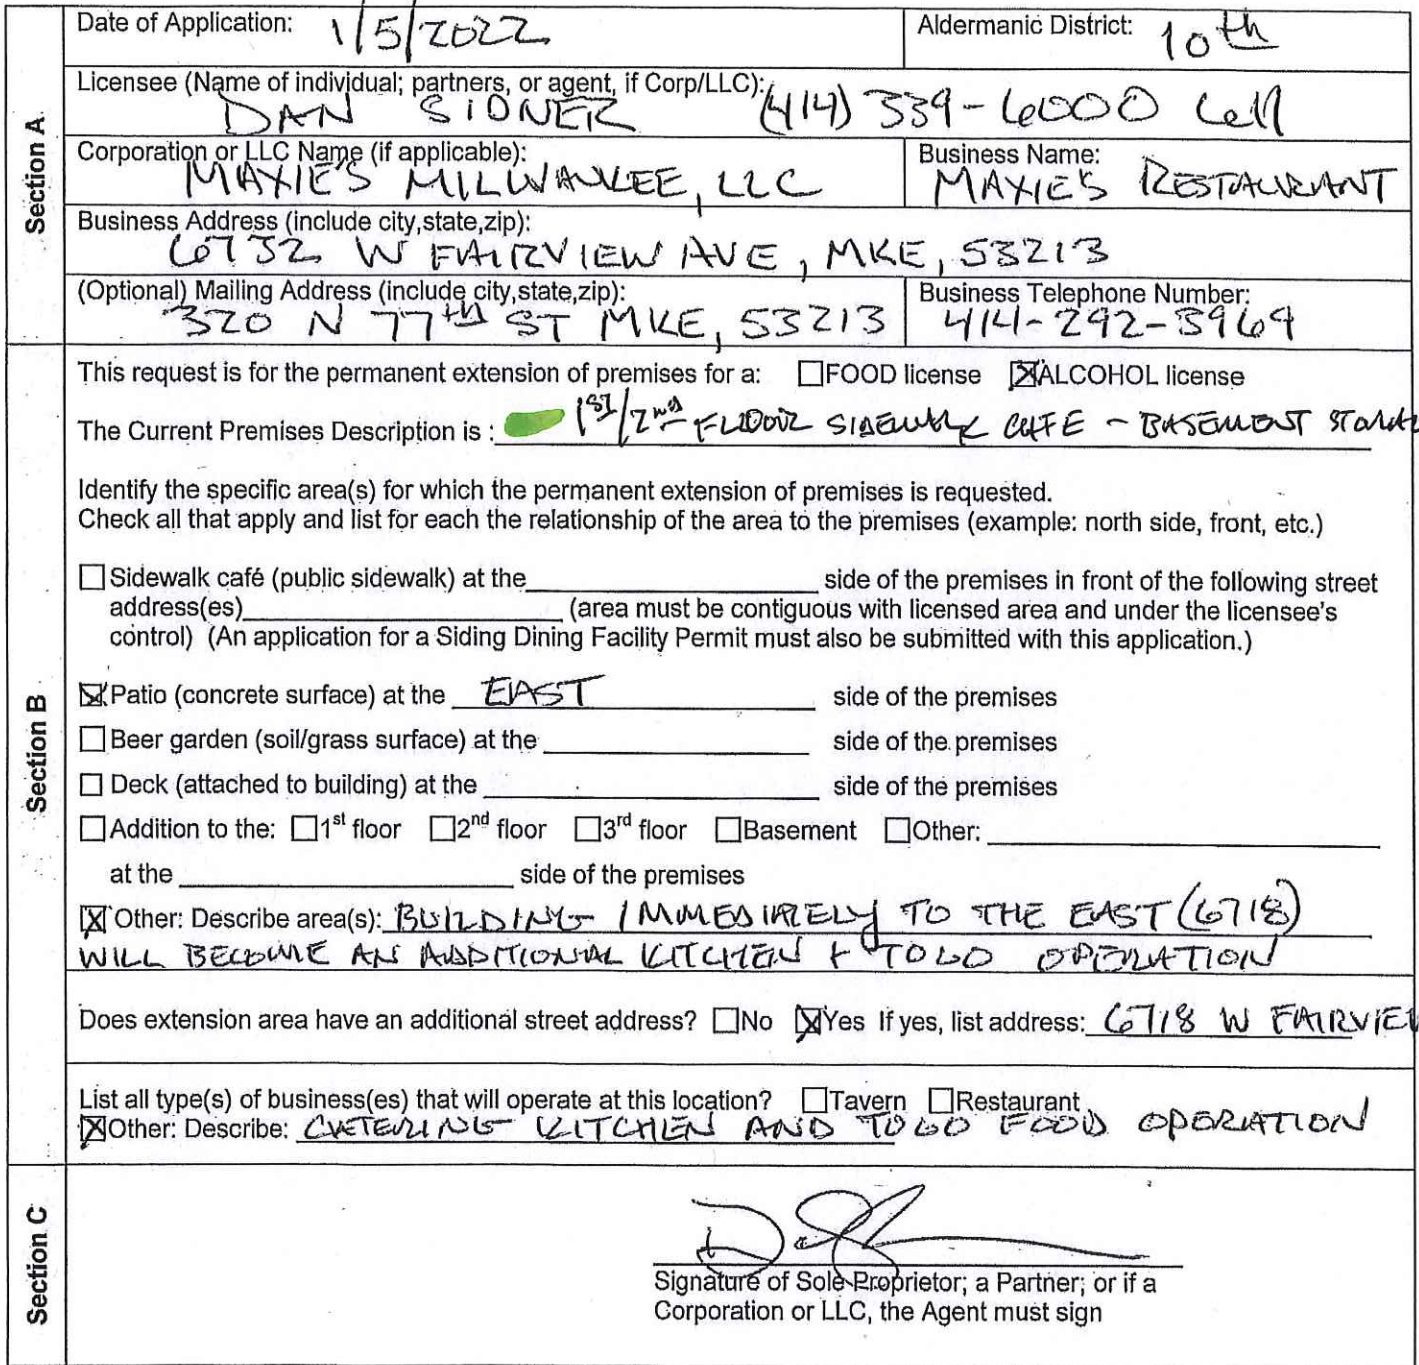 Section A
Date of Application: 1/5/2022 Aldermanic District: 10th
Licensee (Name of individual; partners, or agent, if Corp/LLC):
DAN SIDNER (414) 339-6000 Cell
Corporation or LLC Name (if applicable): Business Name:
MAXIE'S MILWAUKEE, LLC MAXIE'S RESTAURANT
Business Address (include city,state,zip):
6732 W FAIRVIEW AVE, MKE, 53213
(Optional) Mailing Address (include city,state,zip): Business Telephone Number:
320 N 77th ST MKE, 53213 414-292-3969
Section B
This request is for the permanent extension of premises for a: ☐FOOD license ☒ALCOHOL license
The Current Premises Description is : 1ST/2nd FLOOR SIDEWALK CAFE - BASEMENT
Identify the specific area(s) for which the permanent extension of premises is requested.
Check all that apply and list for each the relationship of the area to the premises (example: north side, front, etc.)
☐Sidewalk café (public sidewalk) at the side of the premises in front of the following street
address(es) (area must be contiguous with licensed area and under the licensee's
control) (An application for a Siding Dining Facility Permit must also be submitted with this application.)
☒Patio (concrete surface) at the EAST side of the premises
☐Beer garden (soil/grass surface) at the side of the premises
☐Deck (attached to building) at the side of the premises
☐Addition to the: ☐1st floor ☐2nd floor ☐3rd floor ☐Basement ☐Other:
at the side of the premises
☒Other: Describe area(s): BUILDING IMMEDIATELY TO THE EAST (6718)
WILL BECOME AN ADDITIONAL KITCHEN + TOGO OPERATION
Does extension area have an additional street address? ☐No ☒Yes If yes, list address: 6718 W FAIRVIEW
List all type(s) of business(es) that will operate at this location? ☐Tavern ☐Restaurant
☒Other: Describe: CATERING KITCHEN AND TOGO FOOD OPERATION
Section C
Signature of Sole Proprietor; a Partner; or if a
Corporation or LLC, the Agent must sign